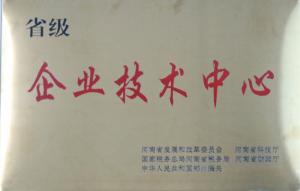 省级
企业技术中心
河南省发展和改革委员会 河南省科技厅
国家税务总局河南省税务局 河南省财政厅
中华人民共和国郑州海关